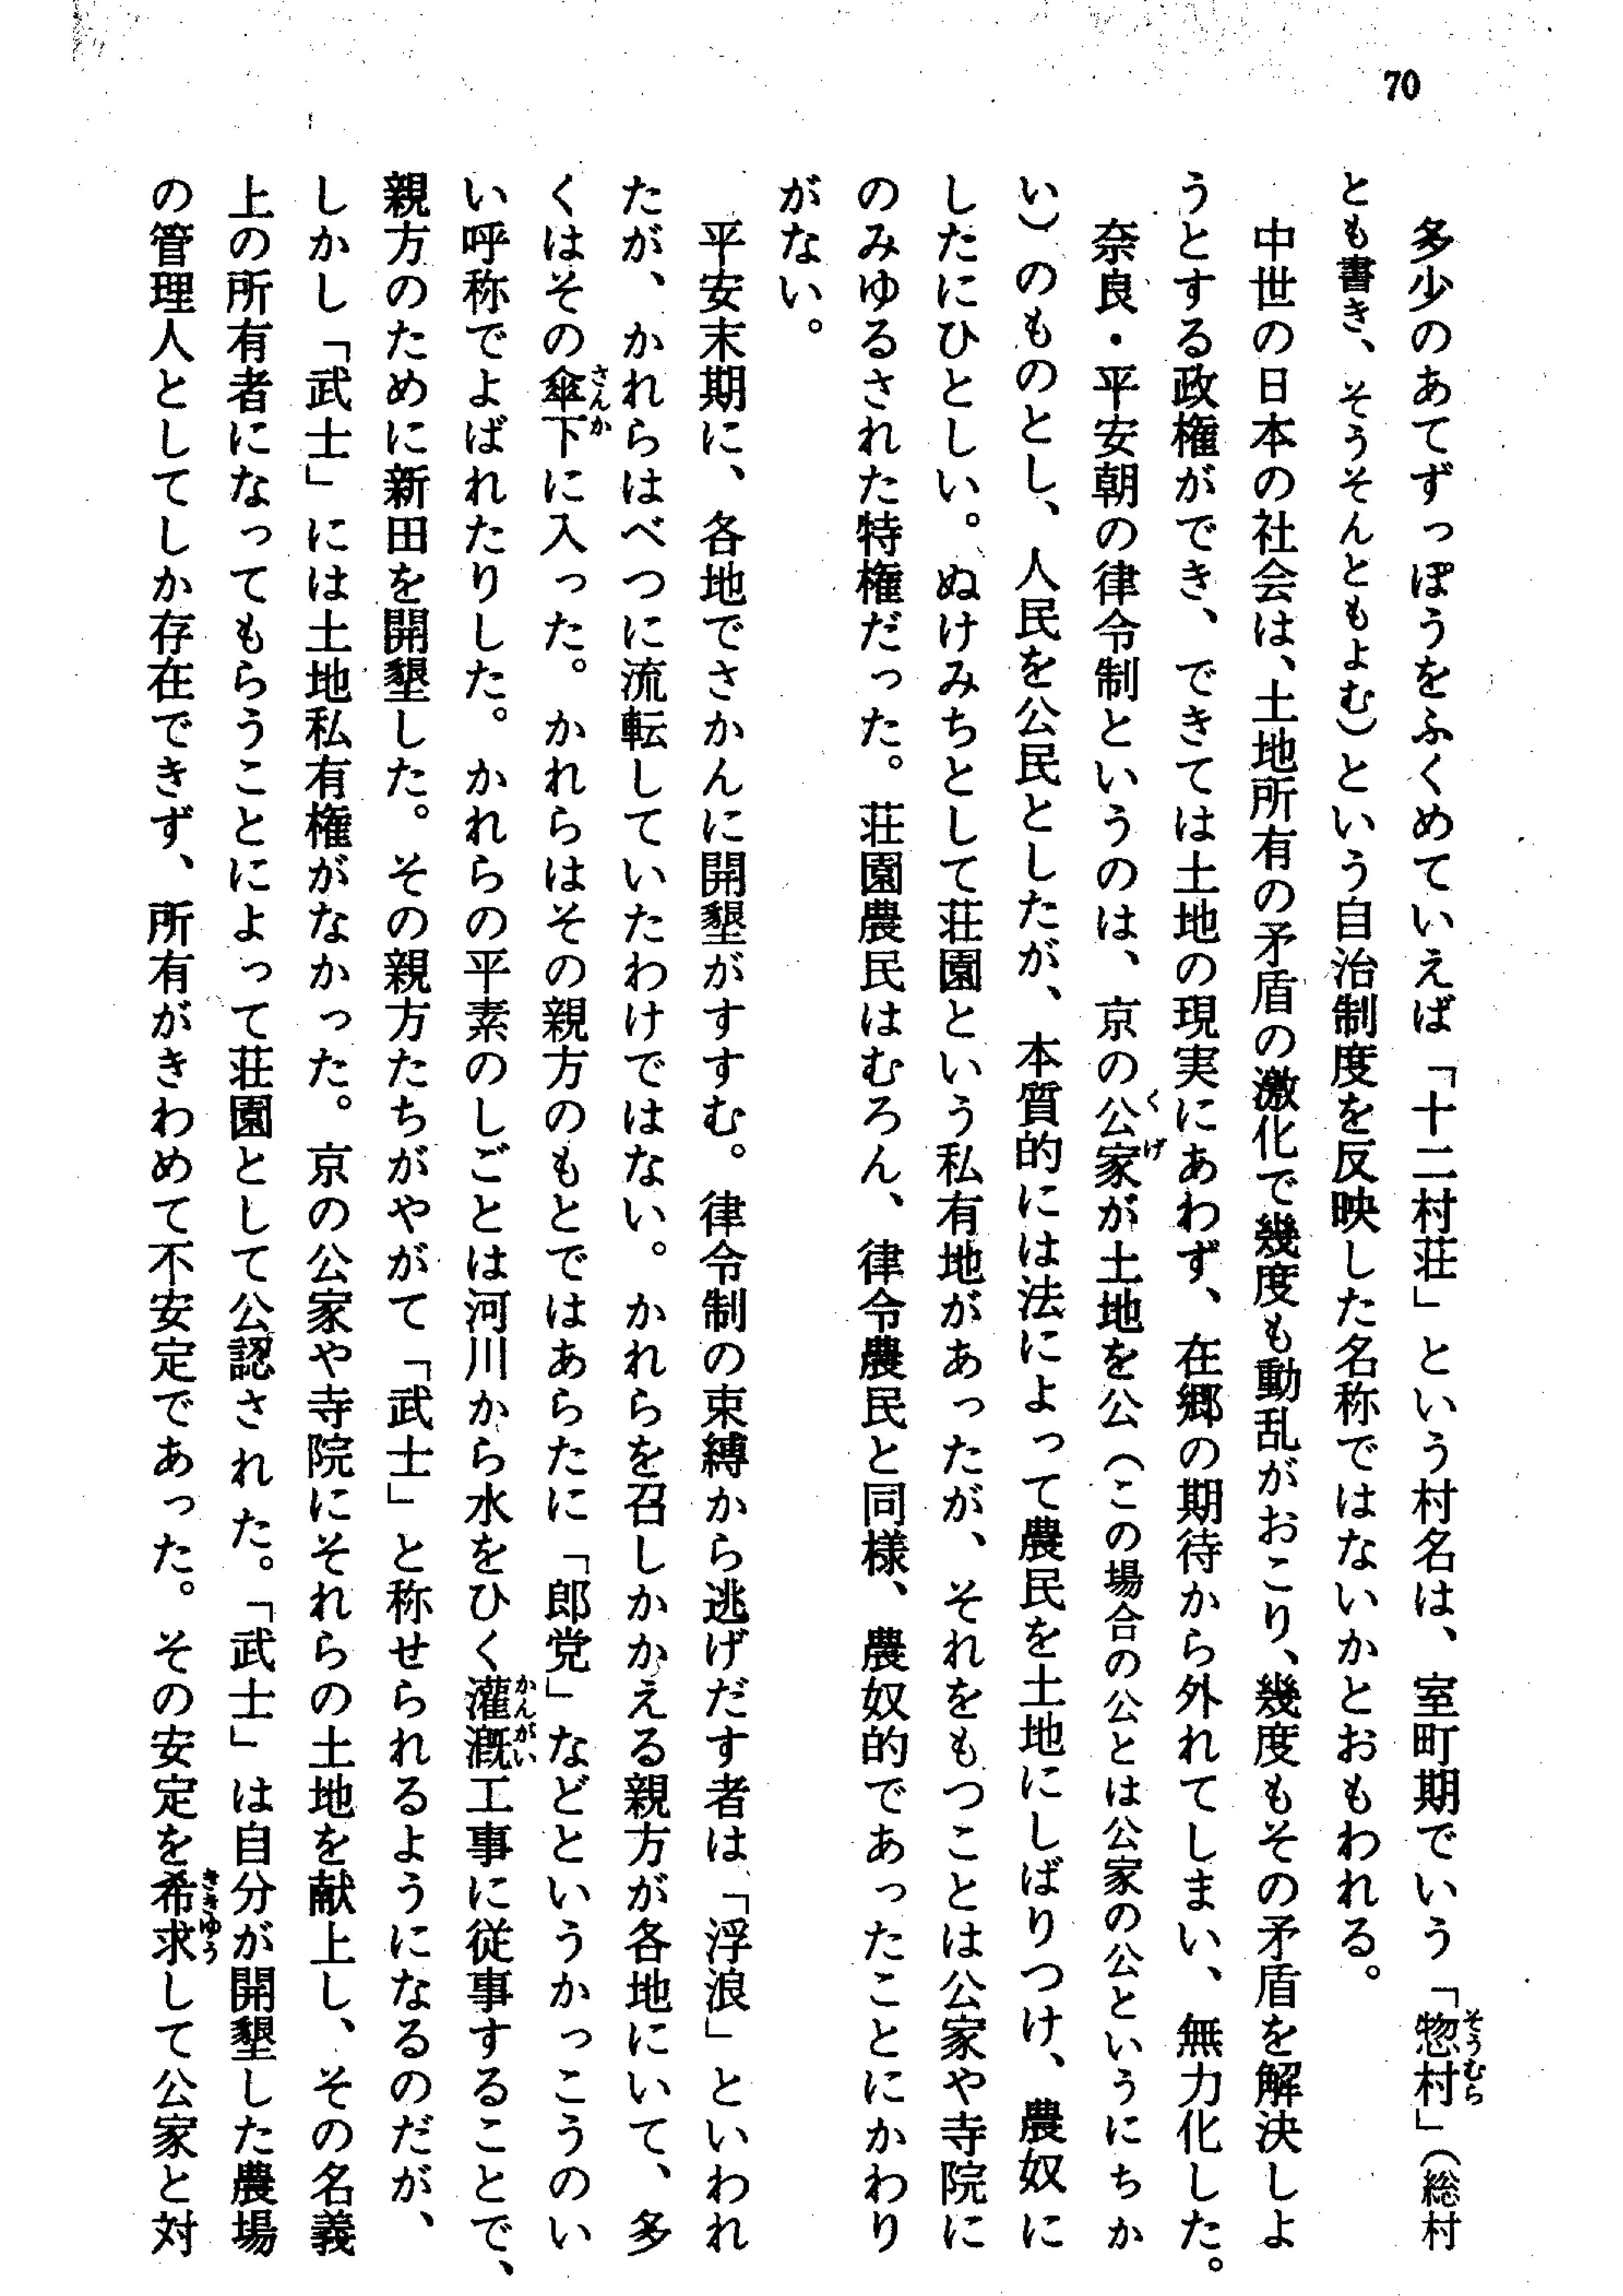 70
多少のあてずっぽうをふくめていえば「十二村荘」という村名は、室町期でいう「惣村」（総村
とも書き、そうそんともよむ）という自治制度を反映した名称ではないかとおもわれる。
中世の日本の社会は、土地所有の矛盾の激化で幾度も動乱がおこり、幾度もその矛盾を解決しよ
うとする政権ができ、できては土地の現実にあわず、在郷の期待から外れてしまい、無力化した。
奈良・平安朝の律令制というのは、京の公家が土地を公（この場合の公とは公家の公というにちか
い）のものとし、人民を公民としたが、本質的には法によって農民を土地にしばりつけ、農奴に
したにひとしい。ぬけみちとして荘園という私有地があったが、それをもつことは公家や寺院に
のみゆるされた特権だった。荘園農民はむろん、律令農民と同様、農奴的であったことにかわり
がない。
平安末期に、各地でさかんに開墾がすすむ。律令制の束縛から逃げだす者は「浮浪」といわれ
たが、かれらはべつに流転していたわけではない。かれらを召しかかえる親方が各地にいて、多
くはその傘下に入った。かれらはその親方のもとではあらたに「郎党」などというかっこうのい
い呼称でよばれたりした。かれらの平素のしごとは河川から水をひく灌漑工事に従事することで、
親方のために新田を開墾した。その親方たちがやがて「武士」と称せられるようになるのだが、
しかし「武士」には土地私有権がなかった。京の公家や寺院にそれらの土地を献上し、その名義
上の所有者になってもらうことによって荘園として公認された。「武士」は自分が開墾した農場
の管理人としてしか存在できず、所有がきわめて不安定であった。その安定を希求して公家と対